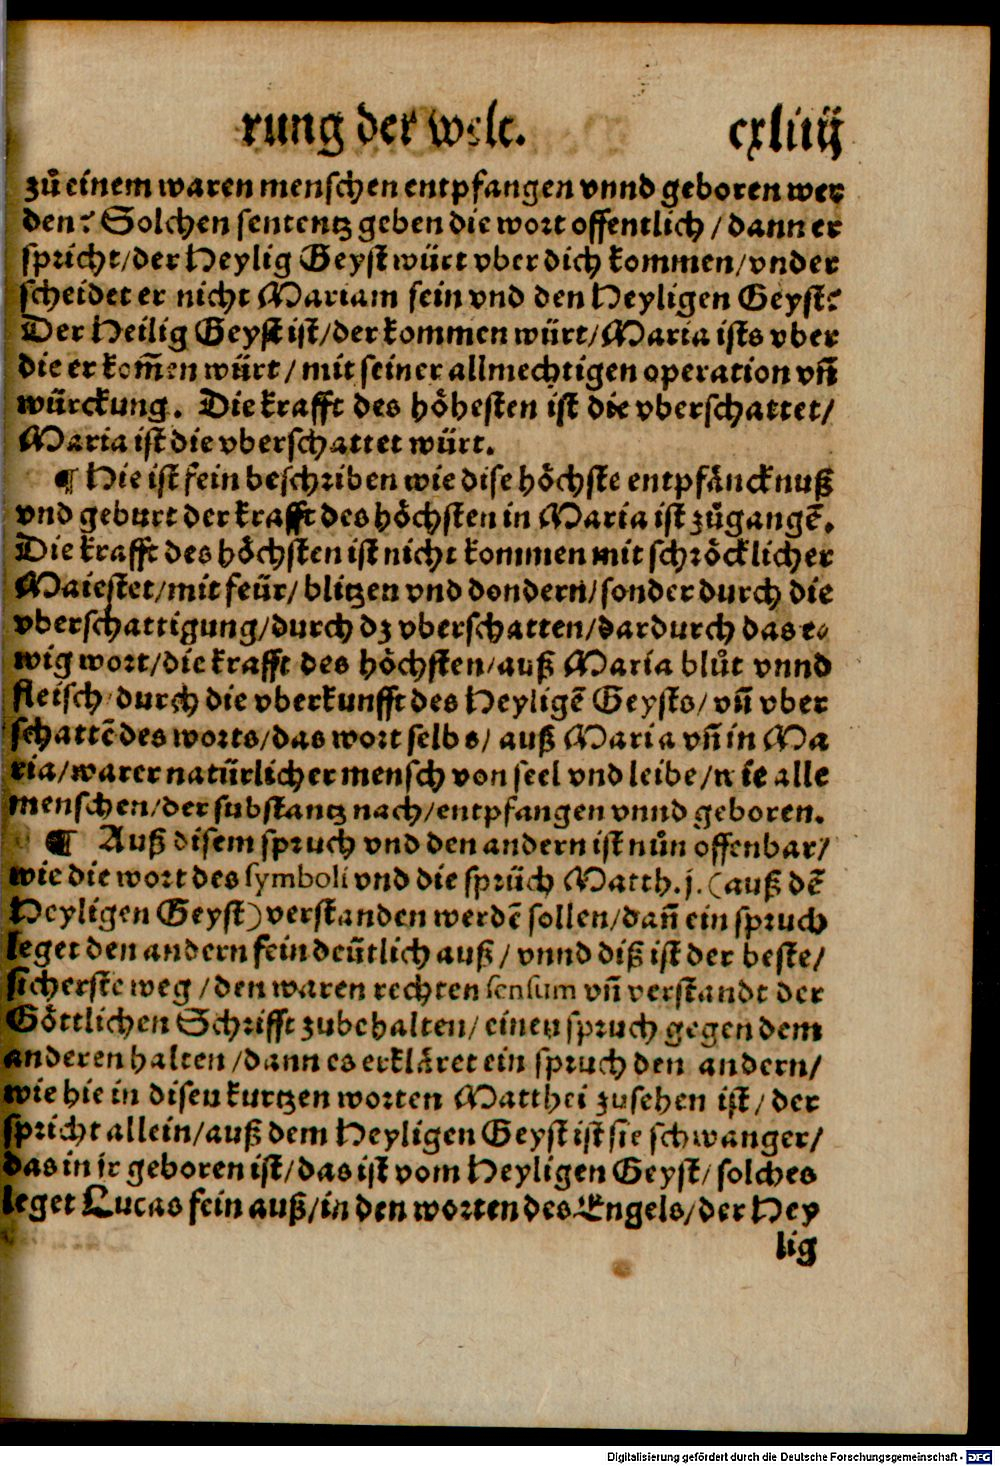 rung der welt. cxliiij
zů einem waren menschen entpfangen vnnd geboren wer
den? Solchen sententz geben die wort offentlich / dann er
spricht/der Heylig Geyst würt vber dich kommen/vnder
scheidet er nicht Mariam fein vnd den Heyligen Geyst?
Der Heilig Geyst ist/der kommen würt/Maria ists vber
die er kom̃en würt / mit seiner allmechtigen operation vñ
würckung. Die krafft des höhesten ist die vberschattet/
Maria ist die vberschattet würt.
¶ Hie ist fein beschriben wie dise höchste entpfäncknuß
vnd geburt der krafft des höchsten in Maria ist zůgangẽ.
Die krafft des höchsten ist nicht kommen mit schröcklicher
Maiestet/mit feür/ blitzen vnd dondern/sonder durch die
vberschattigung/durch dz vberschatten/dardurch das e-
wig wort/die krafft des höchsten/auß Maria blůt vnnd
fleisch/durch die vberkunfft des Heyligẽ Geysts/ vñ vber
schattẽ des worts/das wort selbs/ auß Maria vñ in Ma
ria/warer natürlicher mensch von seel vnd leibe/wie alle
menschen/der substantz nach/entpfangen vnnd geboren.
¶ Auß disem spruch vnd den andern ist nůn offenbar/
wie die wort des symboli vnd die sprüch Matth.j.(auß dẽ
Heyligen Geyst)verstanden werdẽ sollen/dañ ein spruch
leget den andern fein deütlich auß / vnnd diß ist der beste/
sicherste weg /den waren rechten sensum vñ verstandt der
Göttlichen Schrifft zubehalten/ einen spruch gegen dem
anderen halten /dann es erkläret ein spruch den andern/
wie hie in disen kurtzen worten Matthei zusehen ist / der
spricht allein/auß dem Heyligen Geyst ist sie schwanger/
das in jr geboren ist/das ist vom Heyligen Geyst/ solches
leget Lucas fein auß/in den worten des Engels/der Hey
lig
Digitalisierung gefördert durch die Deutsche Forschungsgemeinschaft - DFG